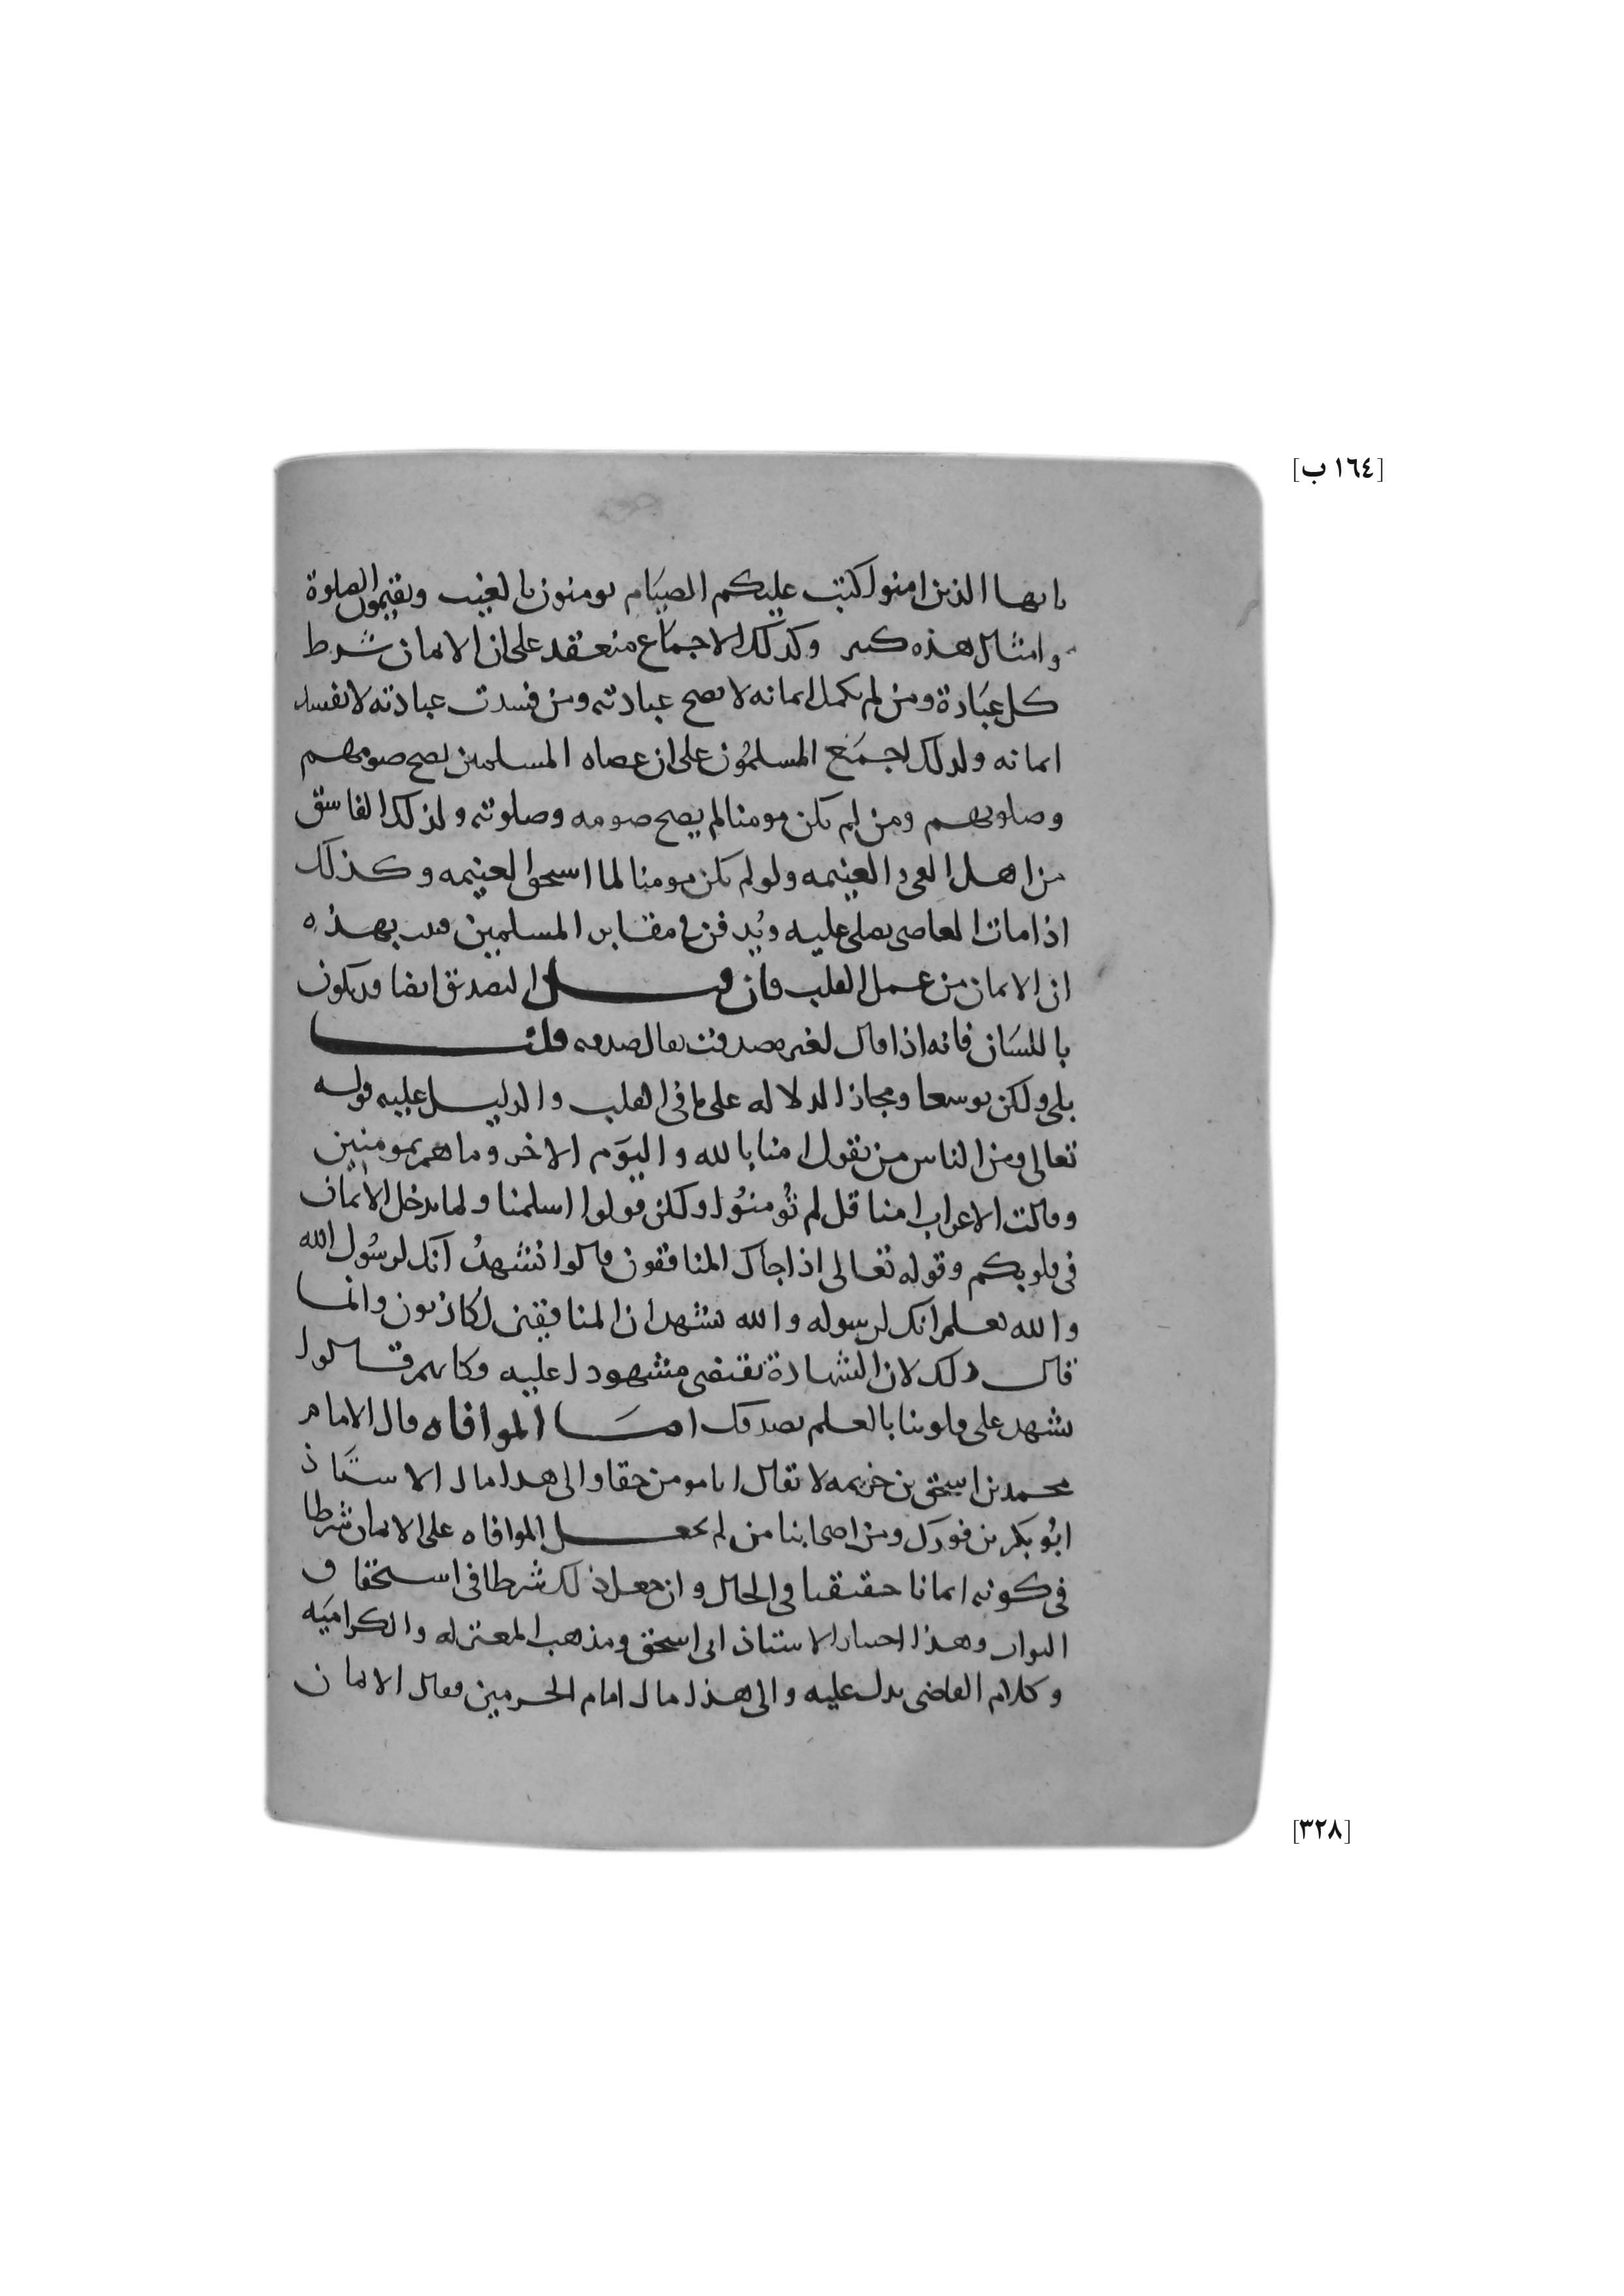 [١٦٤ ب]
يايها الذين امنوا كتب عليكم الصيام يومنون بالغيب ويقيمون الصلوة
وامثال هذه كثير وكذلك الاجماع منعقد على ان الايمان شرط
كل عبادة ومن لم يكمل ايمانه لا تصح عبادته ومن فسدت عبادته لا تفسد
ايمانه ولذلك اجمع المسلمون على ان عصاه المسلمين يصح صومهم
وصلوتهم ومن لم يكن مومنا لم يصح صومه وصلوته ولذلك الفاسق
من اهل الفيء والغنيمه ولو لم يكن مومنا لما استحق الغنيمه وكذلك
اذا مات العاصي يصلى عليه ويدفن في مقابر المسلمين فثبت بهذه
ان الايمان من عمل القلب فان قيل التصديق ايضا قد يكون
باللسان فانه اذا قال لغيره صدقت يقال صدقه قلنا
بلى ولكن توسعا ومجازا لدلاله على ما في القلب والدليل عليه قوله
تعالى ومن الناس من يقول امنا بالله واليوم الاخر وما هم بمومنين
وقالت الاعراب امنا قل لم تؤمنوا ولكن قولوا اسلمنا ولما يدخل الايمان
في قلوبكم وقوله تعالى اذا جاك المنافقون قالوا نشهد انك لرسول الله
والله يعلم انك لرسوله والله يشهد ان المنافقين لكاذبون وانما
قال ذلك لان الشهادة تقتضي مشهودا عليه وكانهم قالوا
نشهد على قلوبنا بالعلم بصدقك اما الموافاه قال الامام
محمد بن اسحق بن خزيمه لا يقال انا مومن حقا والى هذا مال الاستاذ
ابو بكر بن فورك ومن اصحابنا من لم يجعل الموافاه على الايمان شرطا
في كونه ايمانا حقيقيا في الحال وان جعل ذلك شرطا في استحقاق
الثواب وهذا اختيار الاستاذ ابي اسحق ومذهب المعتزله والكراميه
وكلام القاضي يدل عليه والى هذا مال امام الحرمين فقال الايمان
[٣٢٨]